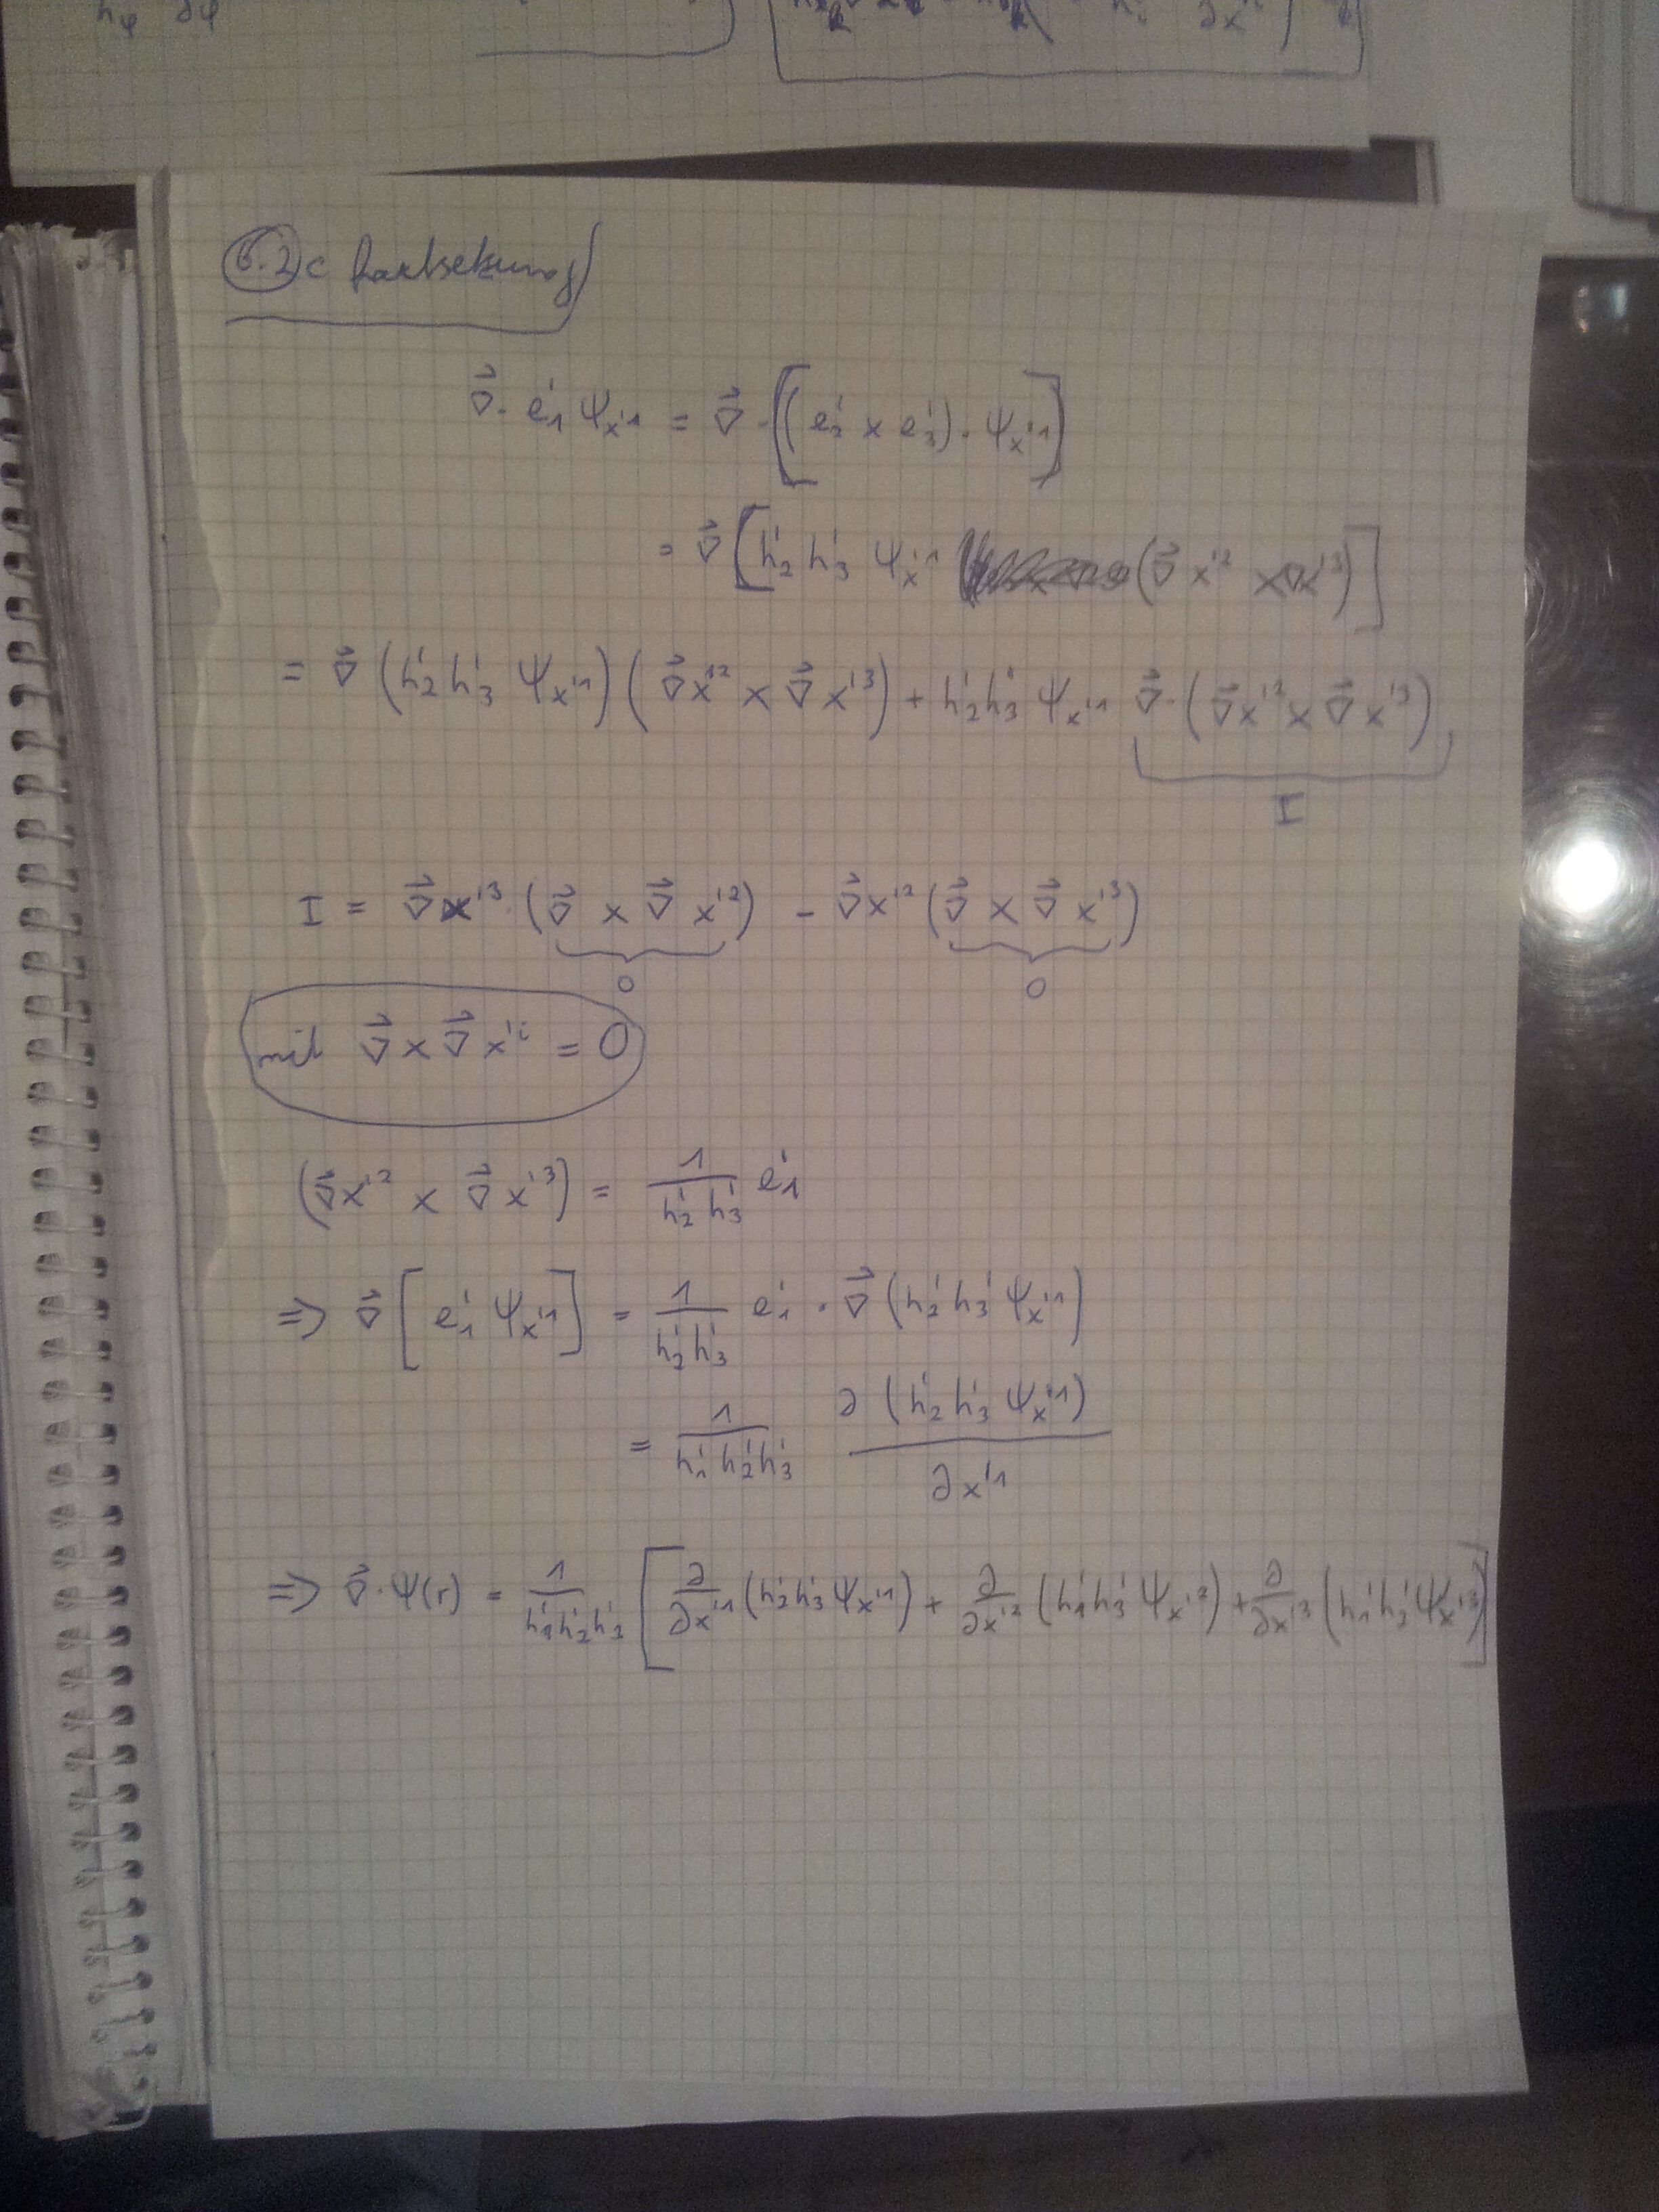 6.2 c Fortsetzung
∇⃗· e'₁ ψ_x'¹ = ∇⃗ · [(e'₂ × e'₃) · ψ_x'¹]
= ∇⃗ [h'₂ h'₃ ψ_x'¹ (∇⃗ x'² × ∇x'³)]
= ∇⃗ (h'₂ h'₃ ψ_x'¹) (∇⃗x'² × ∇⃗x'³) + h'₂h'₃ ψ_x'¹ ∇⃗·(∇⃗x'² × ∇⃗x'³)
I
I = ∇⃗x'³·(∇⃗ × ∇⃗ x'²) − ∇⃗x'² (∇⃗ × ∇⃗ x'³)
0 0
mit ∇⃗ × ∇⃗ x'ⁱ = 0
(∇⃗x'² × ∇⃗x'³) = 1/(h'₂ h'₃) e'₁
⇒ ∇⃗ [e'₁ ψ_x'¹] = 1/(h'₂h'₃) e'₁ · ∇⃗ (h'₂h'₃ ψ_x'¹)
= 1/(h'₁h'₂h'₃) ∂(h'₂h'₃ ψ_x'¹)/∂x'¹
⇒ ∇⃗·ψ(r) = 1/(h'₁h'₂h'₃) [∂/∂x'¹ (h'₂h'₃ψ_x'¹) + ∂/∂x'² (h'₁h'₃ψ_x'²) + ∂/∂x'³ (h'₁h'₂ψ_x'³)]